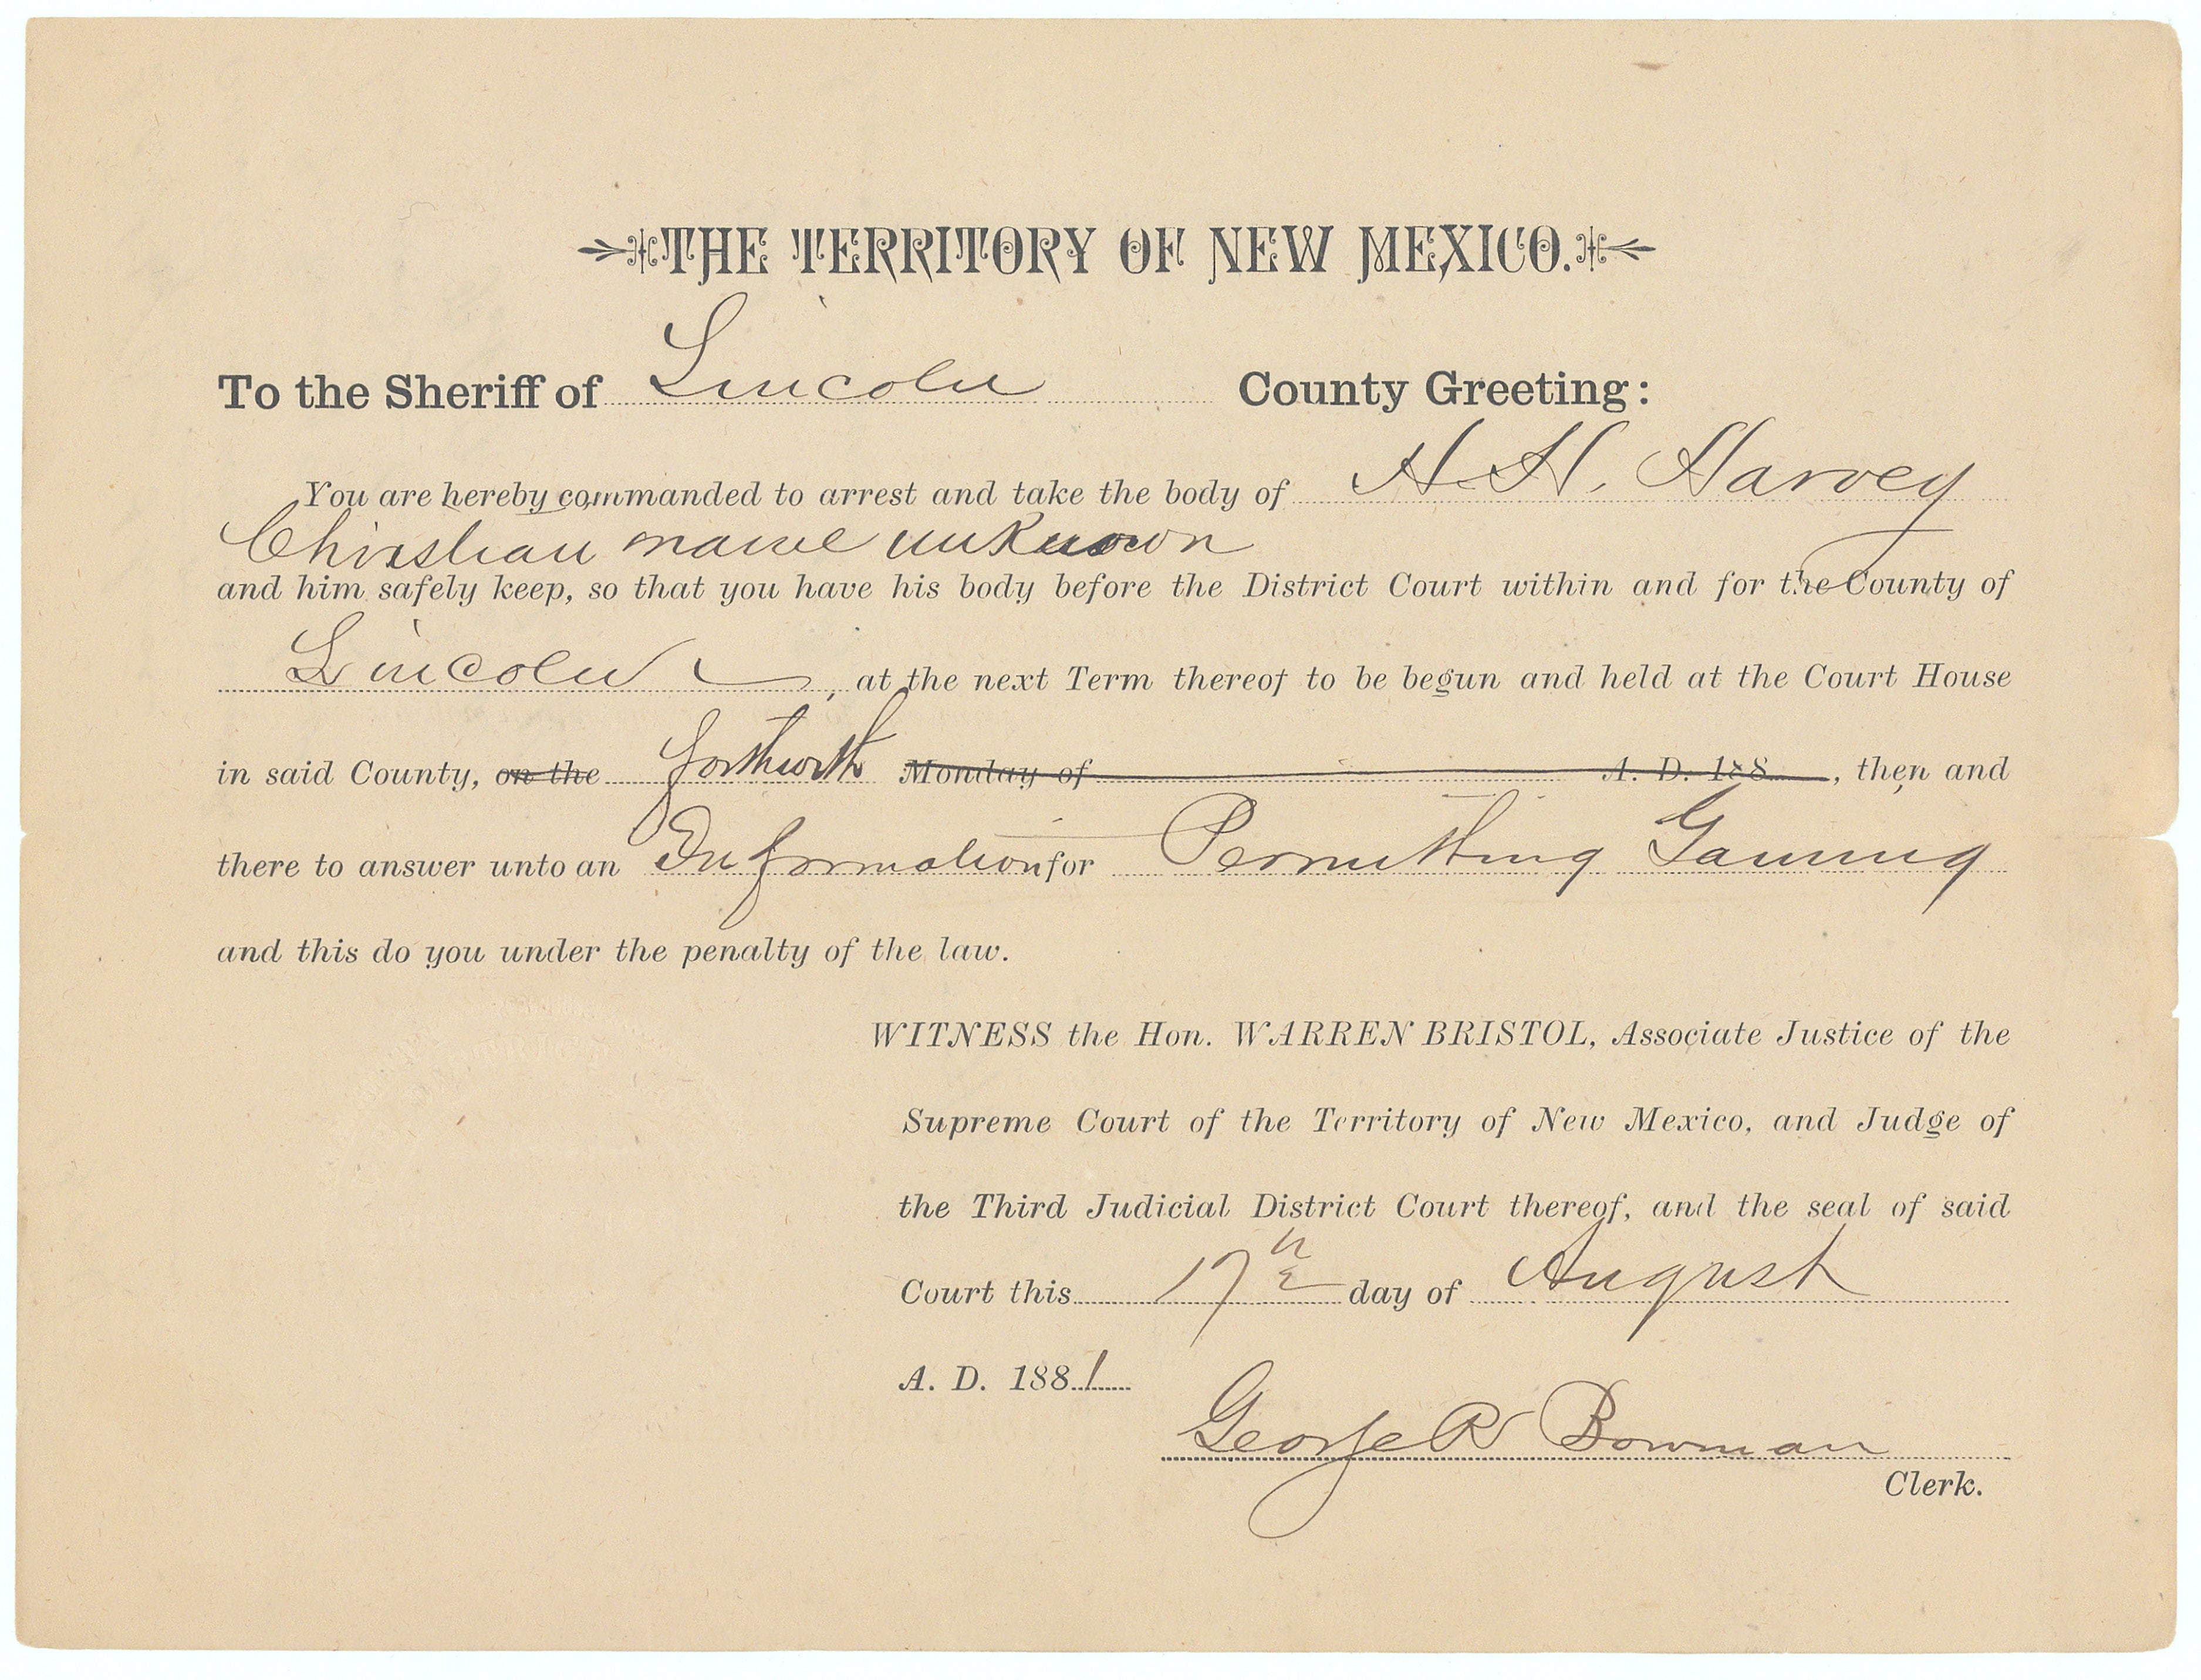 THE TERRITORY OF NEW MEXICO.
To the Sheriff of Lincoln County Greeting:
You are hereby commanded to arrest and take the body of H. H. Harvey
Christian name unknown
and him safely keep, so that you have his body before the District Court within and for the County of
Lincoln, at the next Term thereof to be begun and held at the Court House
in said County, on the forthwith Monday of A. D. 188 , then and
there to answer unto an Information for Permitting Gaming
and this do you under the penalty of the law.
WITNESS the Hon. WARREN BRISTOL, Associate Justice of the
Supreme Court of the Territory of New Mexico, and Judge of
the Third Judicial District Court thereof, and the seal of said
Court this 17th day of August
A. D. 1881
George R Bowman
Clerk.